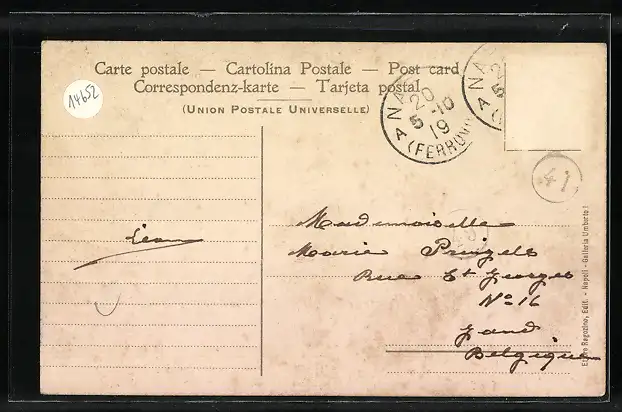 Carte postale — Cartolina Postale — Post card
Correspondenz-karte — Tarjeta postal
(UNION POSTALE UNIVERSELLE)
14652
20
5-10
19
(FERROVIA
41
Léon
Mademoiselle
Marie
Rue St Georges
No 16
Gand
Belgique
Ettore Ragozino, Edit. - Napoli - Galleria Umberto I